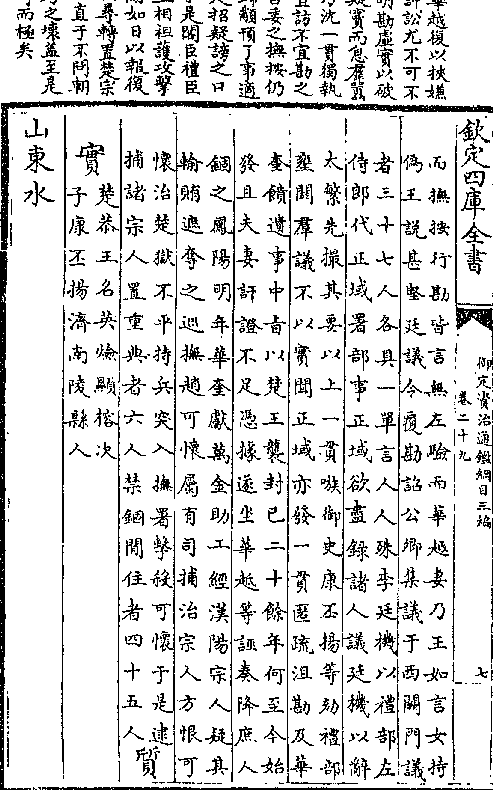 華越復以挾嫌
訐訟尤不可不
明勘虛實以破
疑竇而息羣囂
乃沈一貫獨執
宜訪不宜勘之
委之撫按仍
顢頇了事適
招疑謗之口
是閣臣禮臣
相袒護攻擊
如日以報復
尋轉置楚宗
直于不問朝
之壞蓋至是
而極矣
欽定四庫全書
御定資治通鑑綱目三編
卷二十九
七
而撫按行勘皆言無左驗而華越妻乃王如言女持
偽王說甚堅廷議令覆勘詔公卿集議于西闕門議
者三十七人各具一單言人人殊李廷機以禮部左
侍郎代正域署部事正域欲盡錄諸人議廷機以辭
太繁先撮其要以上一貫嗾御史康丕揚等劾禮部
壅閼羣議不以實聞正域亦發一貫匿疏沮勘及華
奎饋遺事中旨以楚王襲封已二十餘年何至今始
發且夫妻訐證不足憑據遂坐華越等誣奏降庶人
錮之鳳陽明年華奎獻萬金助工經漢陽宗人疑其
輸賄遮奪之巡撫趙可懷屬有司捕治宗人方恨可
懷治楚獄不平持兵突入撫署擊殺可懷于是逮
捕諸宗人置重典者六人禁錮閒住者四十五人 質
實 楚恭王名英㷿顯榕次
子康丕揚濟南陵縣人
山東水